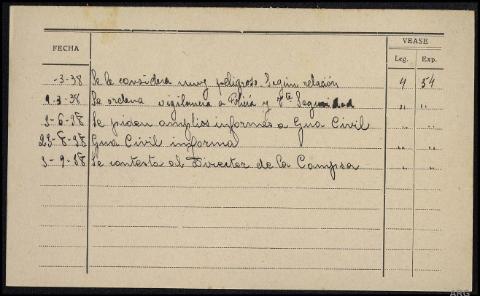 VEASE
FECHA Leg. Exp.
-3-38 Se le considera muy peligroso. Según relación 4 54
9-3-38 Se ordena vigilancia a Policía y Seguridad " "
3-6-38 Se piden amplios informes a Gua Civil " "
23-8-38 Gua Civil informa " "
3-9-38 Se contesta al Director de la Campsa " "
ARG